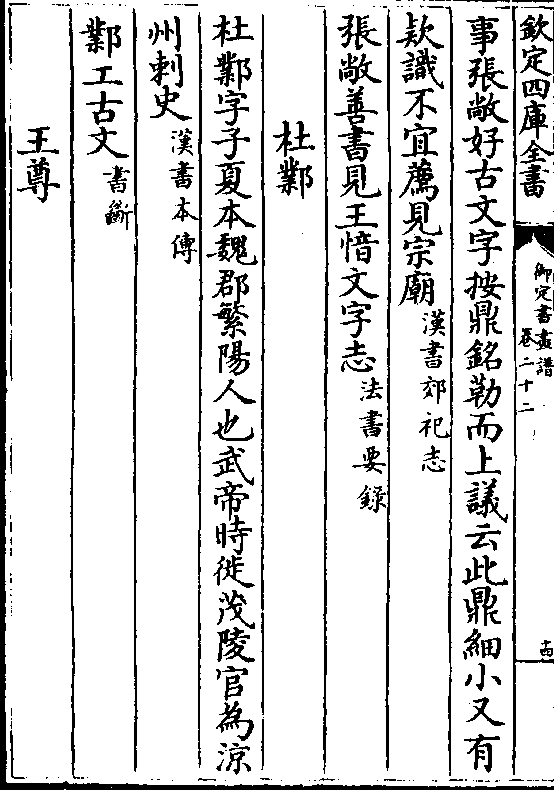 欽定四庫全書
御定書畫譜
卷二十二
十四
事張敞好古文字按鼎銘勒而上議云此鼎細小又有
欵識不宜薦見宗廟漢書郊祀志
張敞善書見王愔文字志法書要錄
杜鄴
杜鄴字子夏本魏郡繁陽人也武帝時徙茂陵官為涼
州刺史漢書本傳
鄴工古文書斷
王尊